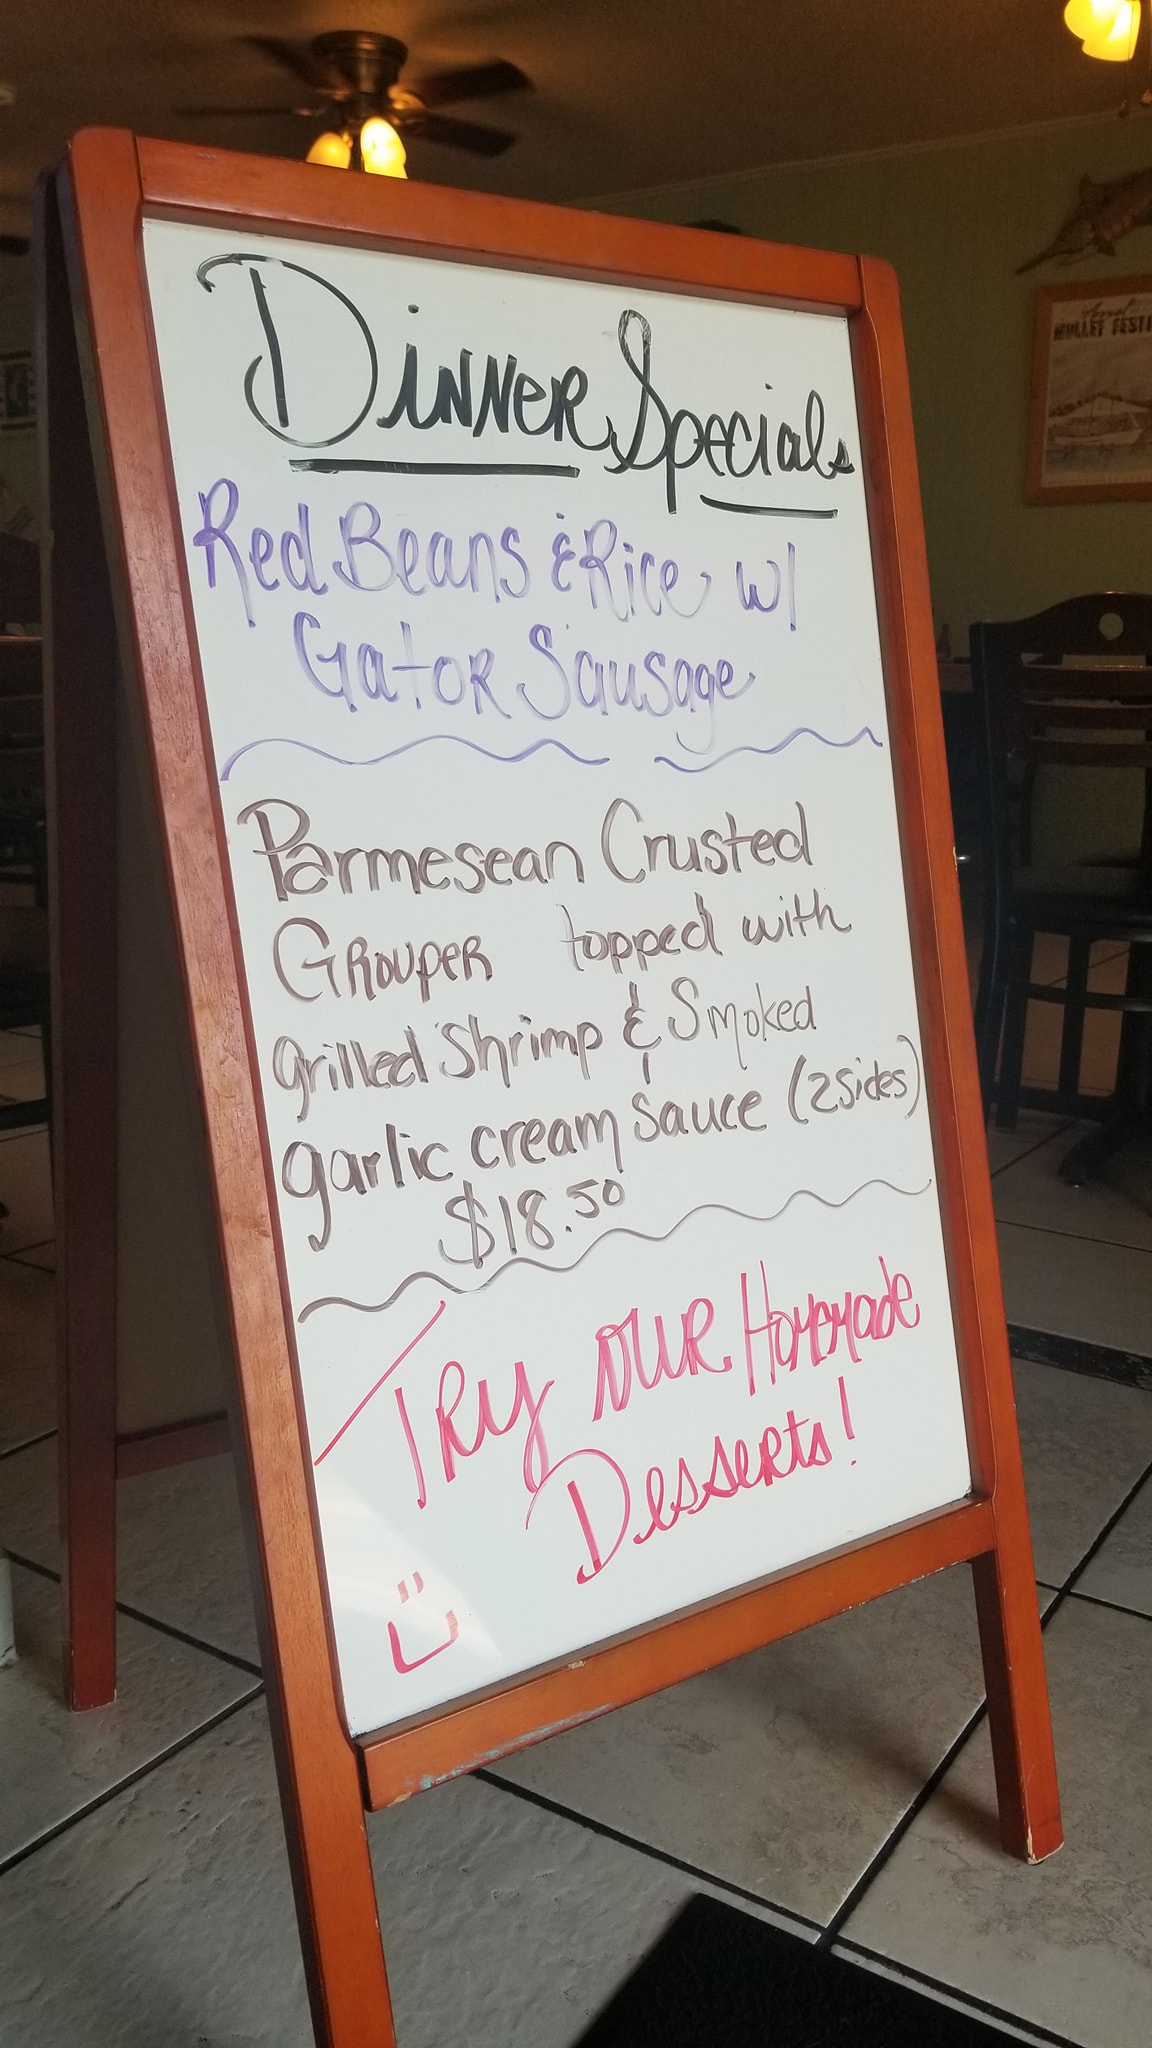 Dinner Specials
Red Beans & Rice w/
Gator Sausage
Parmesean Crusted
Grouper topped with
grilled shrimp & Smoked
garlic cream sauce (2 sides)
$18.50
Try our Homemade
Desserts!
MULLET FESTI